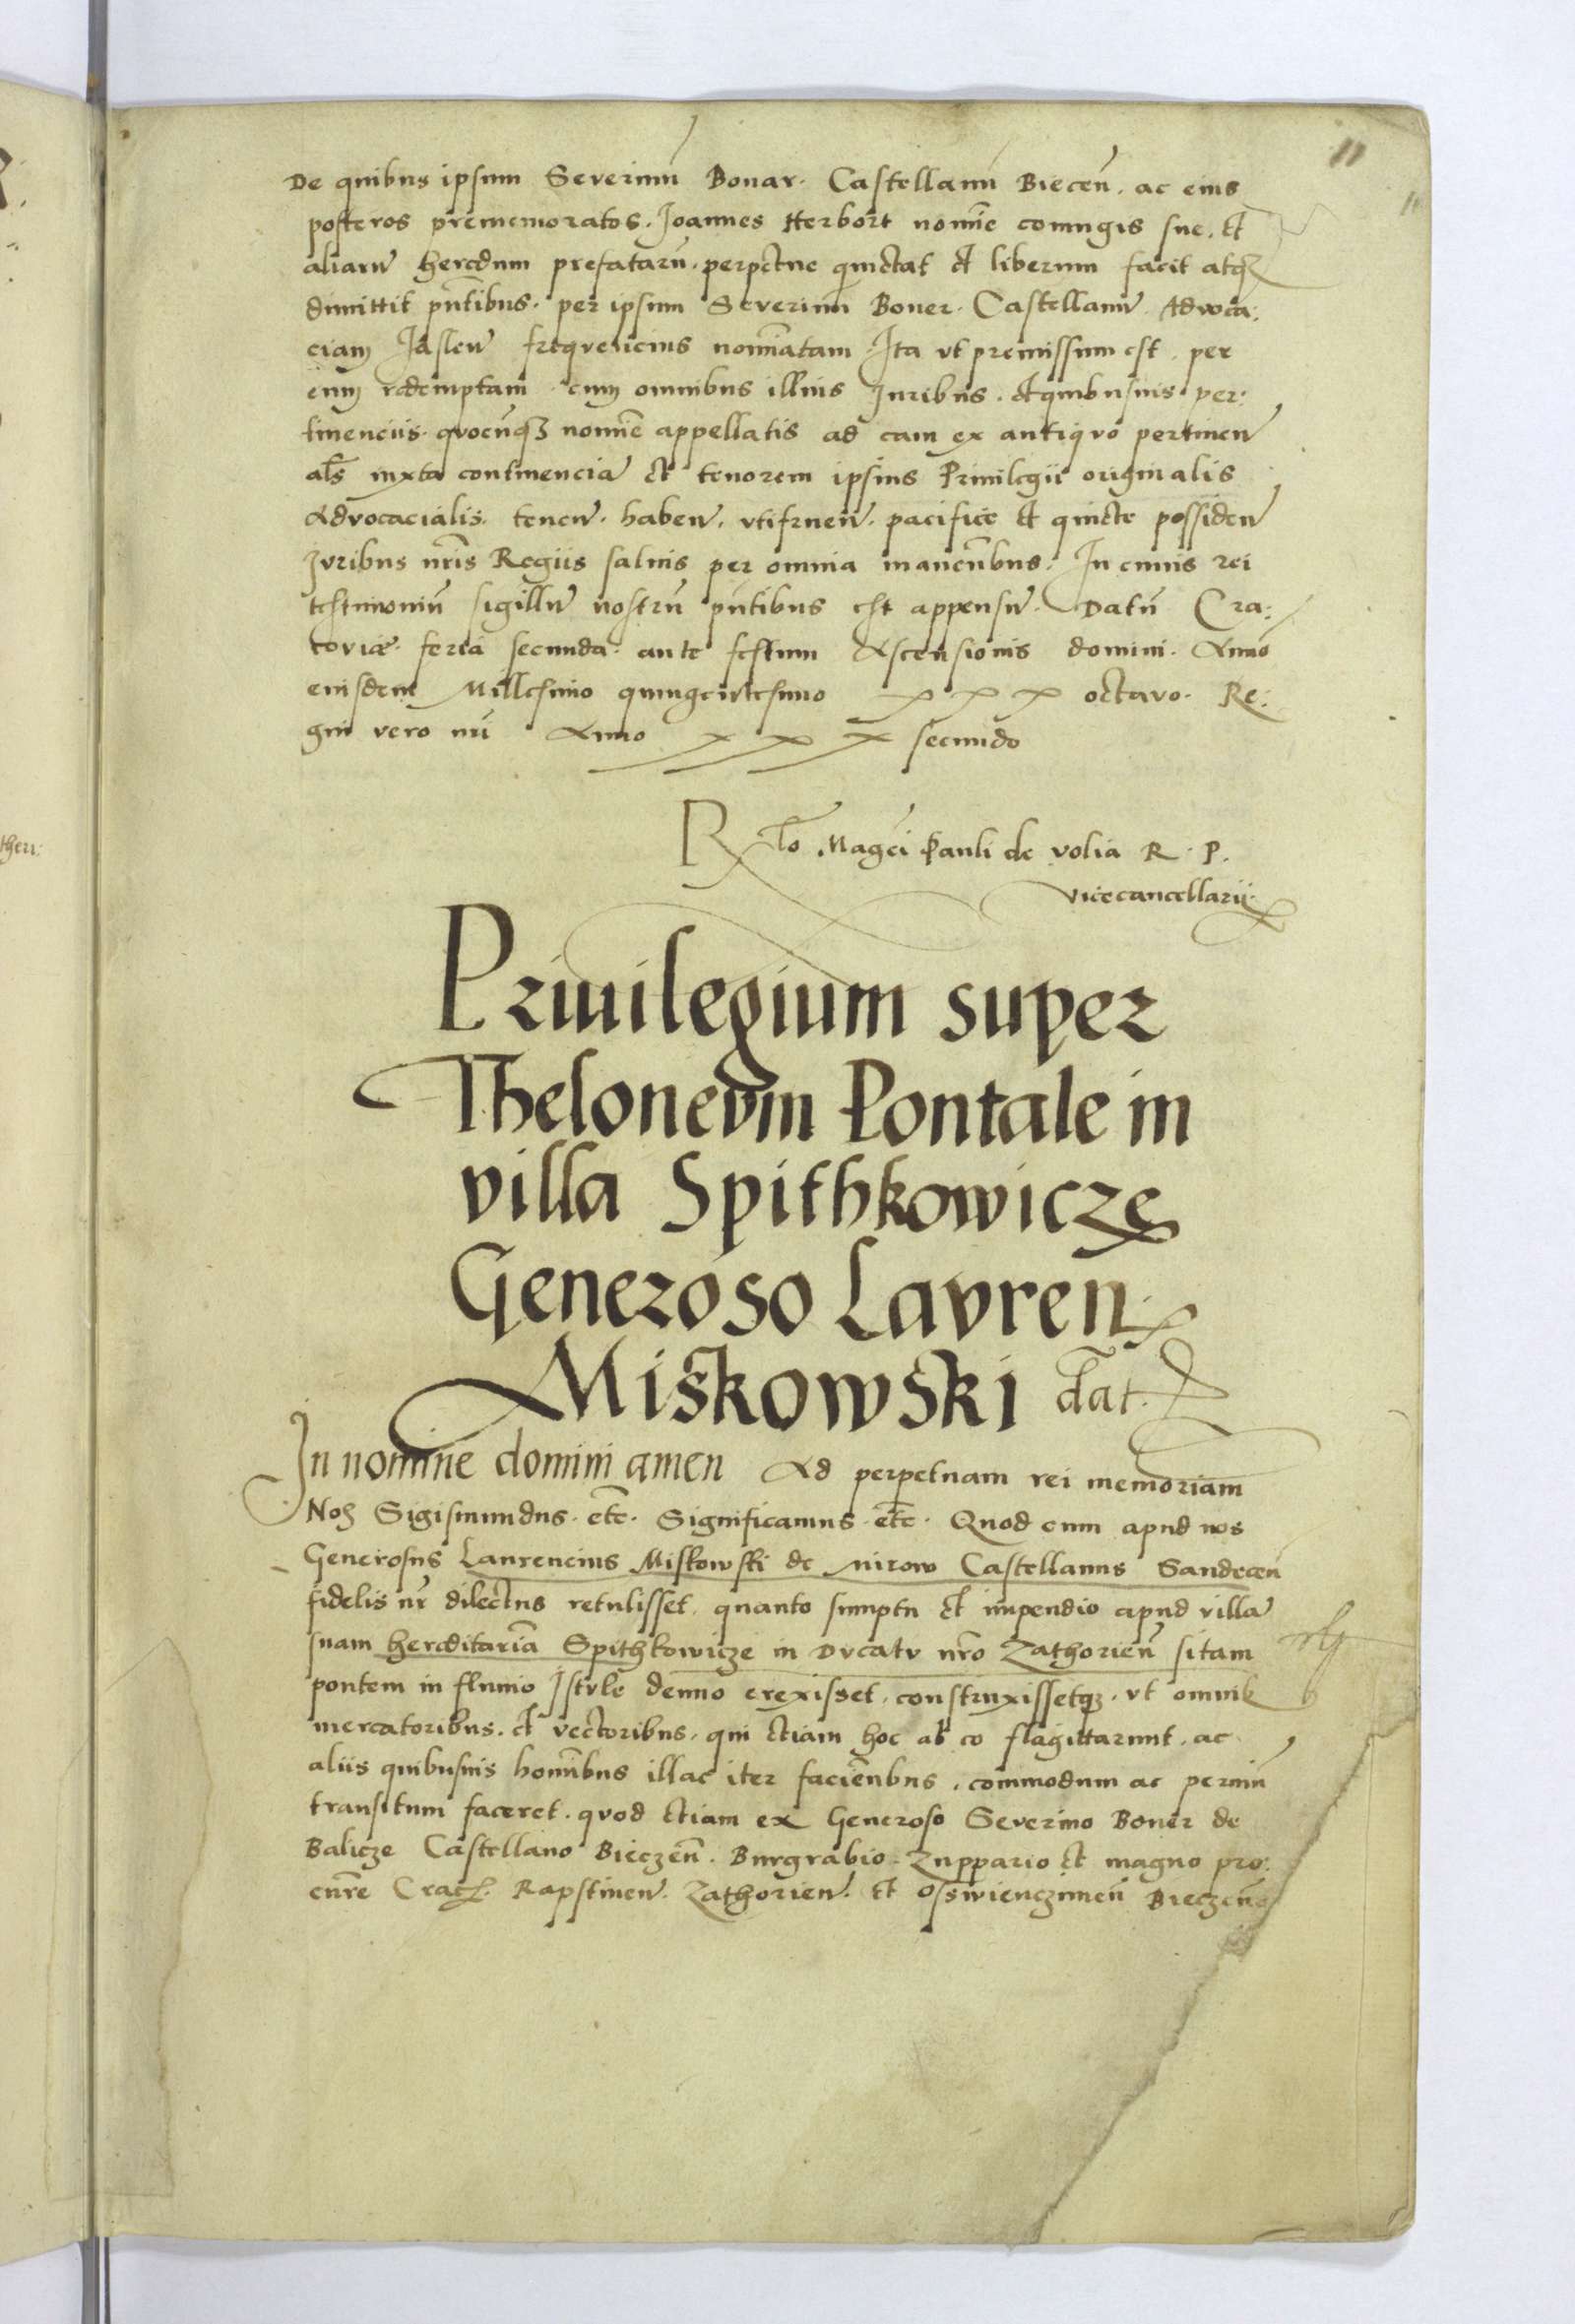 11
De quibus ipsum Severinū Bonar. Castellanū Biecen̄. ac eius
posteros prememoratos. Joannes Herbort nomīe coniugis sue. et
aliarū heredum prefatarū. perpetue quictat et liberum facit atq
dimittit pn̄tibus. per ipsum Severinū Boner. Castellanū Advoca:
ciam Jaslen̄ freqvencius nomīatam. Ita vt premissum est. per
eum redemptam cum omnibus illius Juribus. et quibusuis per:
tinenciis. qvocūqz nomīe appellatis ad eam ex antiqvo pertinen̄
al̄s iuxta continenciā et tenorem ipsius Priuilegii originalis
Advocacialis. tenen̄. haben̄. vtifruen̄. pacifice et quiete possiden̄
Jvribus nr̄is Regiis saluis per omnia manen̄bus. In cuius rei
testimoniū sigillū nostrū pn̄tibus est appensū. Datū Cra:
coviæ. feria secunda. ante festum Ascensionis domini. Anno
eiusdem Millesimo quingentesimo x x x octavo. Re:
gni vero nrī Anno x x x secundo
R l̄o Magc̄i Pauli de volia R. P.
vicecancellarii
Priuilegium super
Theloneum Pontale in
villa Spithkowicze
Generoso Lavren
Miskowski dat.
In nomine domini amen Ad perpetuam rei memoriam
Nos Sigismundus. etc̄. Significamus. etc̄. Quod cum apud nos
Generosus Laurencius Miskowski de Mirow Castellanus Sandecen̄
fidelis nr̄ dilectus retulisset. quanto sumptu et impendio apud villā
suam hereditariā Spithkowicze in Dvcatv nr̄o Zathorien̄ sitam
pontem in fluuio Istvle denuo erexisset. construxissetqz. vt omnib
mercatoribus. et vectoribus. qui etiam hoc ab eo flagittarunt. ac
aliis quibusuis homībus illac iter facien̄bus. commodum ac peruiū
transitum faceret. qvod etiam ex Generoso Severino Boner de
Balicze Castellano Bieczen̄. Burgrabio. Zuppario et magno pro:
cur̄e Crac. Rapstinen̄. Zathorien̄. et Osswienczimen̄ Bieczen̄